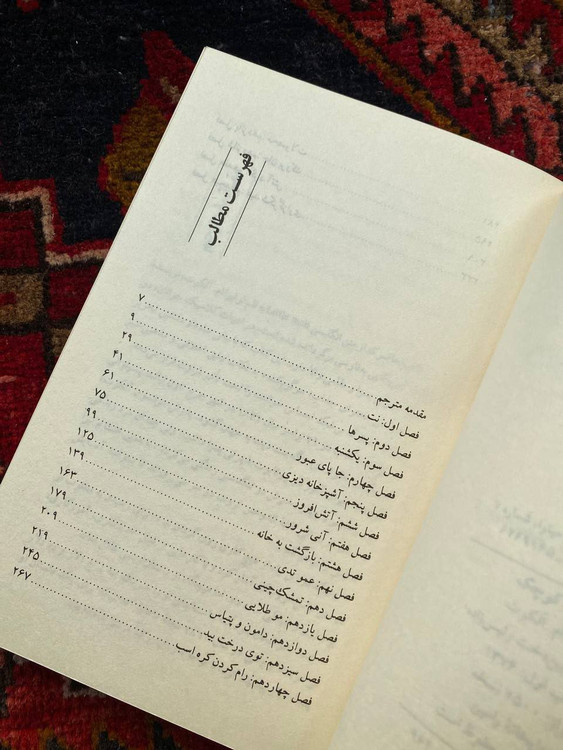 فهرست مطالب
مقدمه مترجم ........ ۷
فصل اول: نت ........ ۹
فصل دوم: پسرها ........ ۲۹
فصل سوم: یکشنبه ........ ۴۱
فصل چهارم: جا پای عبور ........ ۶۱
فصل پنجم: آشپزخانه دیزی ........ ۷۵
فصل ششم: آتش‌افروز ........ ۹۹
فصل هفتم: آنی شرور ........ ۱۲۵
فصل هشتم: بازگشت به خانه ........ ۱۳۹
فصل نهم: عمو تدی ........ ۱۶۳
فصل دهم: تمشک‌چینی ........ ۱۷۹
فصل یازدهم: مو طلایی ........ ۲۰۹
فصل دوازدهم: دامون و پتیاس ........ ۲۱۹
فصل سیزدهم: توی درخت بید ........ ۲۴۵
فصل چهاردهم: رام کردن کره اسب ........ ۲۶۷